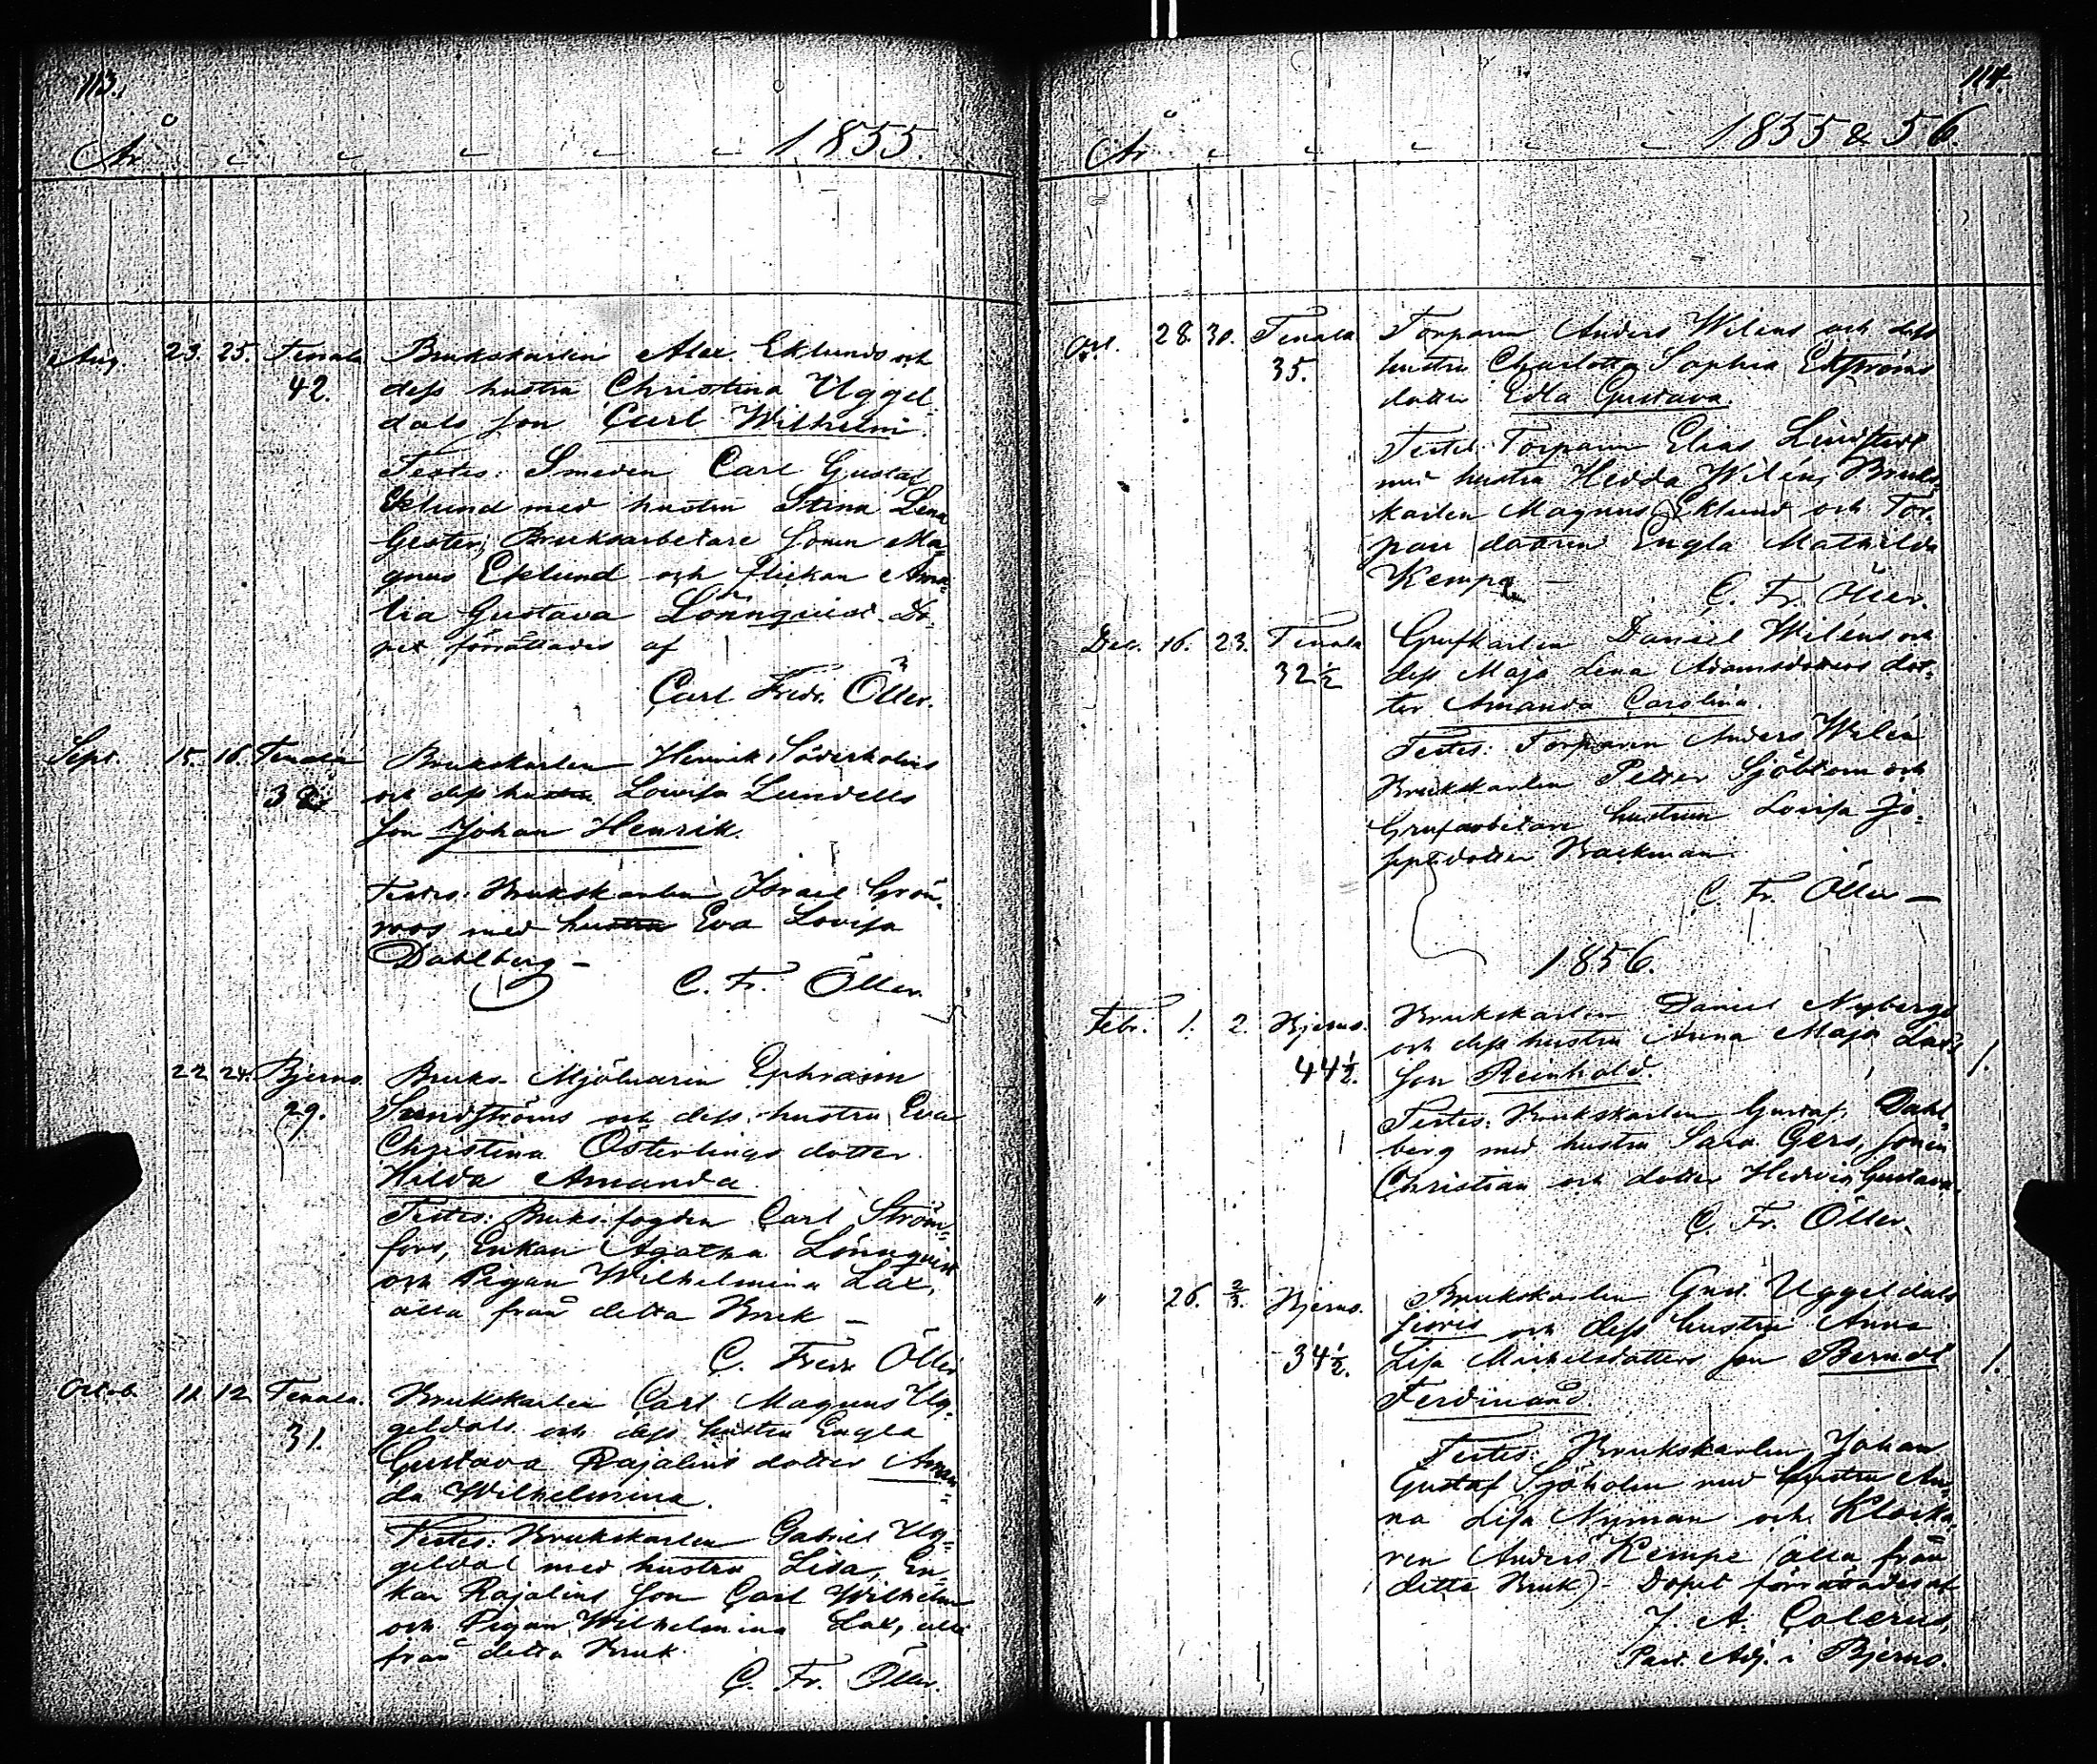 113.
År 1855.
Aug. 23. 25. Tenala Brukskarlen Alex. Eklunds och
42. dess hustru Christina Uggel-
dals son Carl Wilhelm.
Testes: Smeden Carl Gustaf
Eklund med hustru Stina Lena
Gester, Bruksarbetare sonen Ma-
gnus Eklund och flickan Ama-
lia Gustava Lönnqvist. Do-
pet förrättades af
Carl Fredr. Öller.
Sept. 15. 16. Tenala Brukskarlen Henrik Söderholms
och dess hustru Lovisa Lundells
son Johan Henrik.
Testes: Brukskarlen Israel Grön-
roos med hustru Eva Lovisa
Dahlberg —
C. Fr. Öller.
22 24. Bjerno. Bruks- Mjölnaren Ephraim
29. Sundströms och dess hustru Eva
Christina Österlings dotter
Hilda Amanda.
Testes: Bruksfogden Carl Ström-
fors, Enkan Agatha Lönnqvist
och Pigan Wilhelmina Lax,
alla från detta Bruk —
C. Fredr Öller
Octob. 11. 12. Tenala. Brukskarlen Carl Magnus Ug-
31. geldals och dess hustru Engla
Gustava Rajalins dotter Aman-
da Wilhelmina.
Testes: Brukskarlen Gabriel Ug-
geldal med hustru Lisa, En-
kan Rajalins son Carl Wilhelm
och Pigan Wilhelmina Lax, alla
från detta Bruk.
C. Fr. Öller.
114.
År 1855 & 56.
Oct. 28. 30. Tenala Torparn Anders Wilens och dess
35. hustru Charlotta Sophia Ekströms
dotter Edla Gustava.
Testes: Torparn Elias Lindstedt
med hustru Hedda Wilén, Bruks-
karlen Magnus Eklund och Tor-
pare dottren Engla Mathilda
Kempe —
C. Fr. Öller.
Dec. 16. 23. Tenala Grufkarlen Daniel Wiléns och
32½ dess Maja Lena Adamsdotters dot-
ter Amanda Carolina.
Testes: Torparen Anders Wilén
Brukskarlen Petter Sjöblom och
Grufarbetare hustrun Lovisa Jo-
sephsdotter Backman.
C. Fr. Öller —
1856.
Febr. 1. 2. Bjerno. Brukskarlen Daniel Nybergs
och dess hustru Anna Maja Lax's 1.
44½. son Reinhold.
Testes: Brukskarlen Gustaf Dahl-
berg med hustru Sara Gers, sonen
Christian och dotter Hedvig Gustava.
C. Fr. Öller.
" 26. 2/3. Bjerno. Brukskarlen Gust. Uggeldals
och dess hustru Anna
34½. Lisa Michelsdotters son Berndt 1.
Ferdinand.
Testes: Brukskarlen Johan
Gustaf Sjöholm med hustru An-
na Lisa Nyman och Klocka-
ren Anders Kempe (alla från
detta Bruk) - Dopet förrättades af
J. A. Calerus,
Past. Adj. i Bjerno.